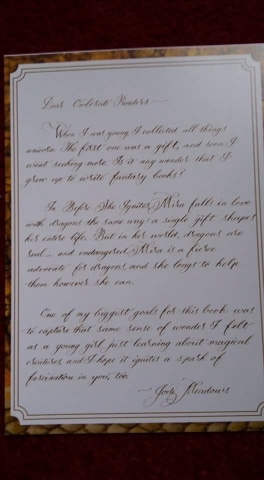 Dear Owlcrate Readers—
When I was young, I collected all things
unicorn. The first one was a gift, and soon I
went seeking more. Is it any wonder that I
grew up to write fantasy books?
In Before She Ignites, Mira falls in love
with dragons the same way: a single gift shapes
her entire life. But in her world, dragons are
real... and endangered. Mira is a fierce
advocate for dragons, and she longs to help
them however she can.
One of my biggest goals for this book was
to capture that same sense of wonder I felt
as a young girl just learning about magical
creatures, and I hope it ignites a spark of
fascination in you, too.
— Jodi Meadows